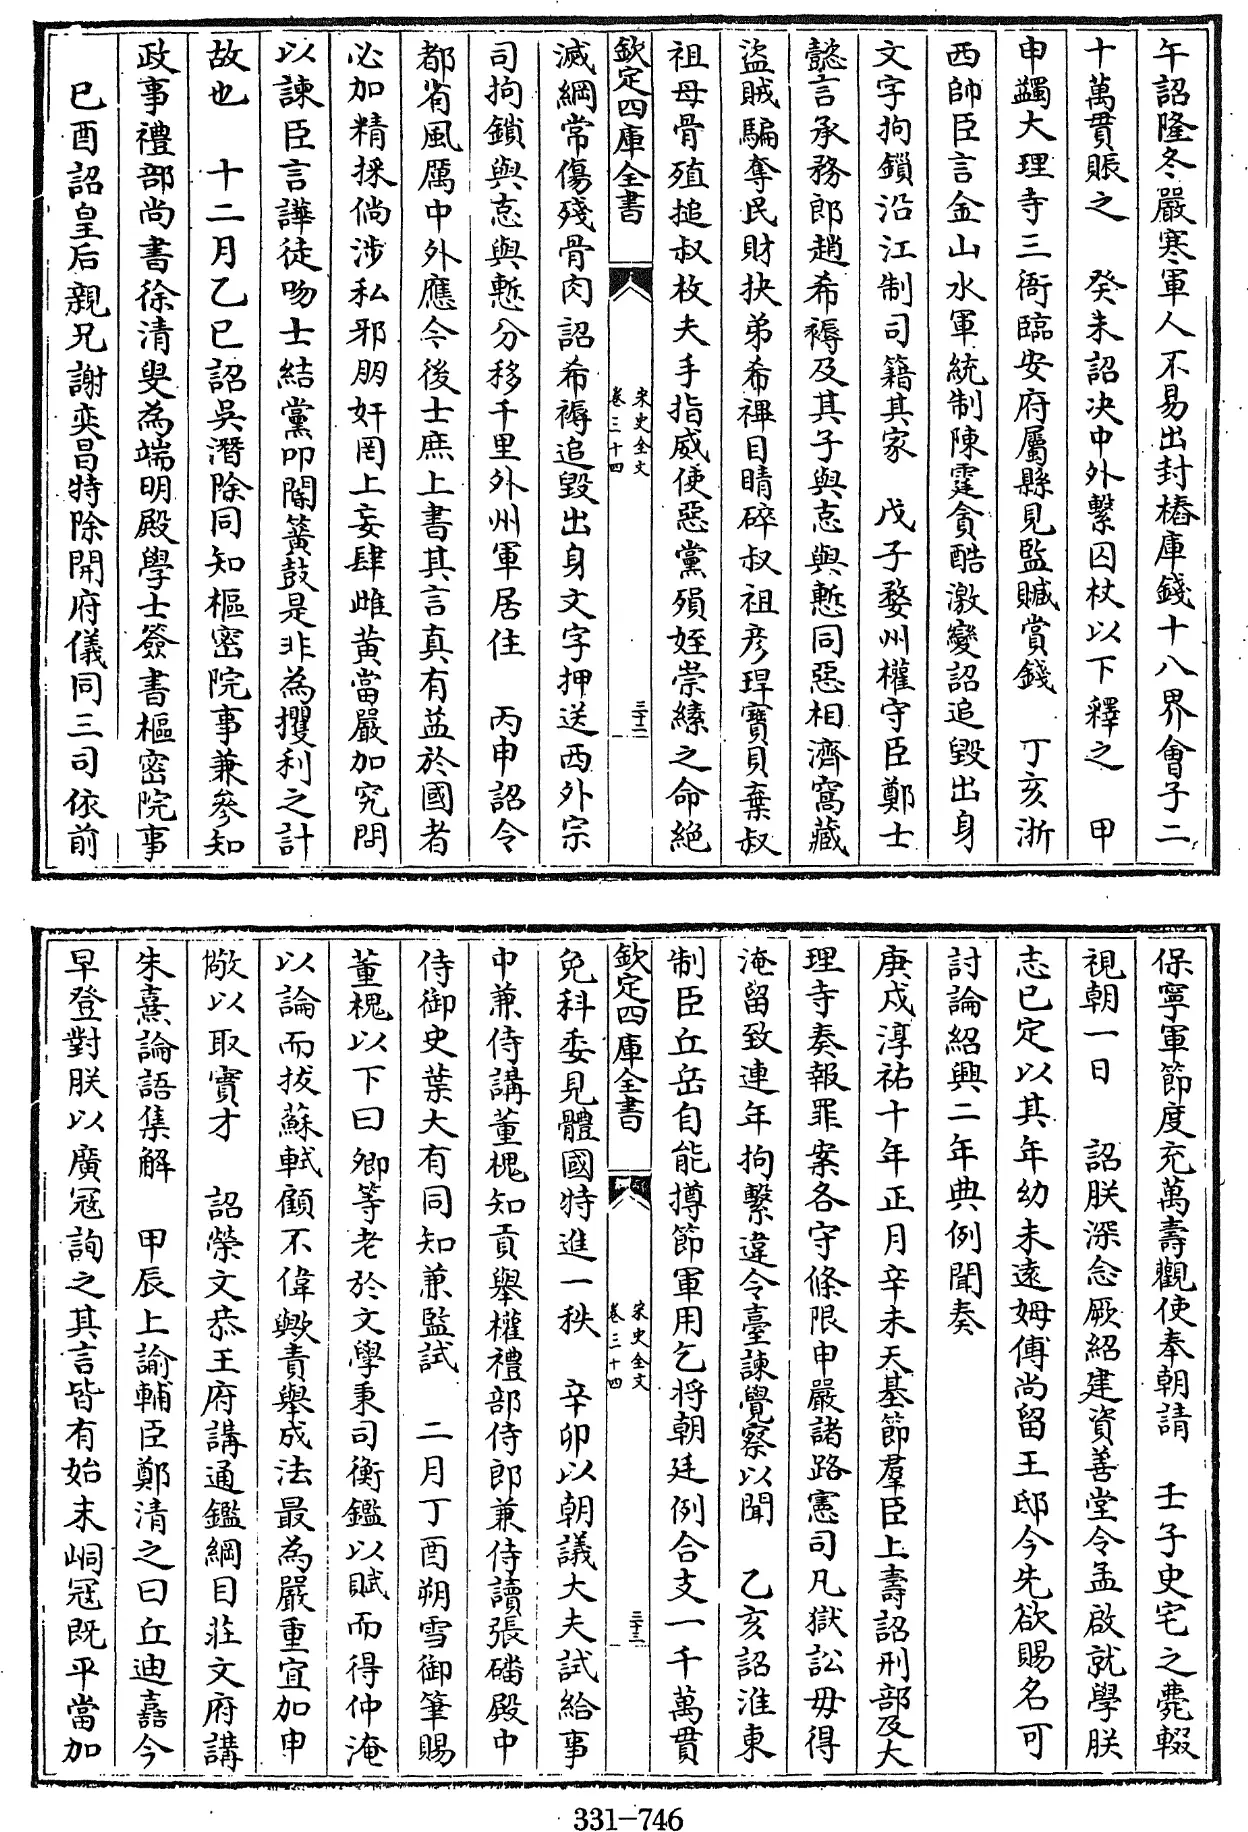 午詔隆冬嚴寒軍人不易出封樁庫錢十八界會子二
十萬貫賑之　癸未詔决中外繫囚杖以下釋之　甲
申蠲大理寺三衙臨安府屬縣見監贓賞錢　丁亥浙
西帥臣言金山水軍統制陳霆貪酷激變詔追毀出身
文字拘鎖沿江制司籍其家　戊子婺州權守臣鄭士
懿言承務郎趙希槈及其子與㤅與慙同惡相濟窩藏
盜賊騙奪民財抉弟希禪目睛碎叔祖彦琾寶貝棄叔
祖母骨殖搥叔枚夫手指威使惡黨殞姪崇縤之命絕
欽定四庫全書
宋史全文
卷三十四
三十二
滅綱常傷殘骨肉詔希槈追毀出身文字押送西外宗
司拘鎖與㤅與慙分移千里外州軍居住　丙申詔令
都省風厲中外應今後士庶上書其言真有益於國者
必加精採倘涉私邪朋奸罔上妄肆雌黄當嚴加究問
以諫臣言譁徒吻士結黨叩閽簧鼓是非為攫利之計
故也　十二月乙巳詔吳潛除同知樞密院事兼參知
政事禮部尚書徐清叟為端明殿學士簽書樞密院事
已酉詔皇后親兄謝奕昌特除開府儀同三司依前
保寧軍節度充萬壽觀使奉朝請　壬子史宅之薨輟
視朝一日　詔朕深念厥紹建資善堂令孟啟就學朕
志已定以其年幼未遠姆傅尚留王邸今先欲賜名可
討論紹興二年典例聞奏
庚戍淳祐十年正月辛未天基節羣臣上壽詔刑部及大
理寺奏報罪案各守條限申嚴諸路憲司凡獄訟毋得
淹留致連年拘繫違令臺諫覺察以聞　乙亥詔淮東
制臣丘岳自能撙節軍用乞将朝廷例合支一千萬貫
欽定四庫全書
宋史全文
卷三十四
三十三
免科委見體國特進一秩　辛卯以朝議大夫試給事
中兼侍講董槐知貢舉權禮部侍郎兼侍讀張磻殿中
侍御史葉大有同知兼監試　二月丁酉朔雪御筆賜
董槐以下曰卿等老於文學秉司衡鑑以賦而得仲淹
以論而拔蘇軾顧不偉歟責舉成法最為嚴重宜加申
敞以取實才　詔榮文恭王府講通鑑綱目莊文府講
朱熹論語集解　甲辰上諭輔臣鄭清之曰丘迪嘉今
早登對朕以廣冦詢之其言皆有始末峒冦既平當加
331-746